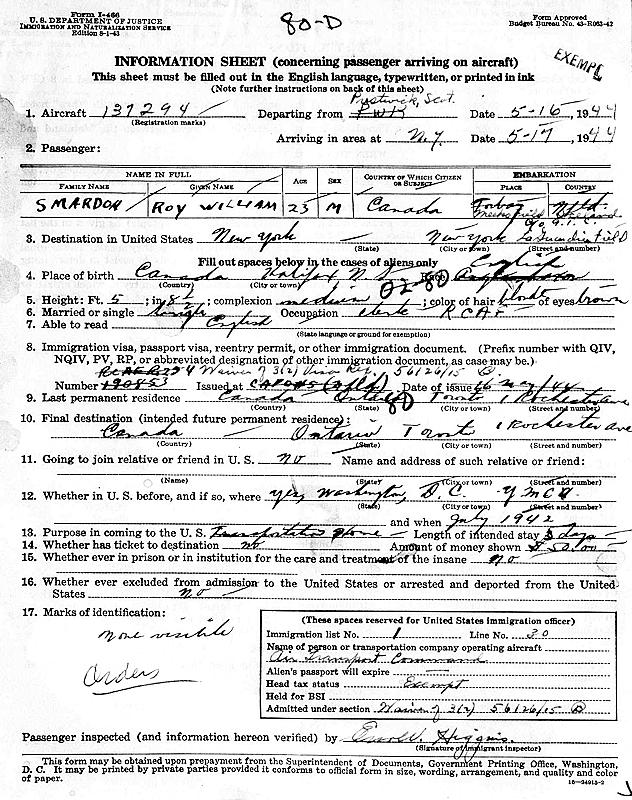 Form I-466
U. S. DEPARTMENT OF JUSTICE
IMMIGRATION AND NATURALIZATION SERVICE
Edition 8-1-43
80-D
Form Approved
Budget Bureau No. 43-R063-42
EXEMPT
INFORMATION SHEET (concerning passenger arriving on aircraft)
This sheet must be filled out in the English language, typewritten, or printed in ink
(Note further instructions on back of this sheet)
Prestwick, Scot.
1. Aircraft 137294 Departing from Date 5-16, 1944
(Registration marks)
Arriving in area at N.Y. Date 5-17, 1944
2. Passenger:
NAME IN FULL AGE SEX COUNTRY OF WHICH CITIZEN OR SUBJECT EMBARKATION
FAMILY NAME GIVEN NAME PLACE COUNTRY
SMARDON ROY WILLIAM 25 M Canada Nfld.
3. Destination in United States New York New York LaGuardia Field
(State) (City or town) (Street and number)
Fill out spaces below in the cases of aliens only English
4. Place of birth Canada Halifax N.S. Race
(Country) (City or town)
5. Height: Ft. 5; in. 8½; complexion medium; color of hair blonde of eyes brown
6. Married or single single Occupation clerk RCAF
7. Able to read English
(State language or ground for exemption)
8. Immigration visa, passport visa, reentry permit, or other immigration document. (Prefix number with QIV,
NQIV, PV, RP, or abbreviated designation of other immigration document, as case may be.)
Waiver of 3(2) Visa Reg. 56126/15 B.
Number Issued at Date of issue
9. Last permanent residence Canada Ontario Toronto 1 Rochester Ave
(Country) (State) (City or town) (Street and number)
80
10. Final destination (intended future permanent residence):
Canada Ontario Toronto 1 Rochester Ave
(Country) (State) (City or town) (Street and number)
11. Going to join relative or friend in U. S. no Name and address of such relative or friend:
(Name) (State) (City or town) (Street and number)
12. Whether in U. S. before, and if so, where yes, Washington, D.C. YMCA
(State) (City or town) (Street and number)
and when July 1942
13. Purpose in coming to the U. S. Transportation home Length of intended stay 3 days
14. Whether has ticket to destination no Amount of money shown $50.00
15. Whether ever in prison or in institution for the care and treatment of the insane no
16. Whether ever excluded from admission to the United States or arrested and deported from the United
States no
17. Marks of identification:
none visible
Orders
(These spaces reserved for United States immigration officer)
Immigration list No. 1 Line No. 30
Name of person or transportation company operating aircraft
Air Transport Command
Alien's passport will expire
Head tax status Exempt
Held for BSI
Admitted under section Waiver of 3(2) 56126/15 B
Passenger inspected (and information hereon verified) by Higgins
(Signature of immigrant inspector)
This form may be obtained upon prepayment from the Superintendent of Documents, Government Printing Office, Washington,
D. C. It may be printed by private parties provided it conforms to official form in size, wording, arrangement, and quality and color
of paper.
16-34915-2